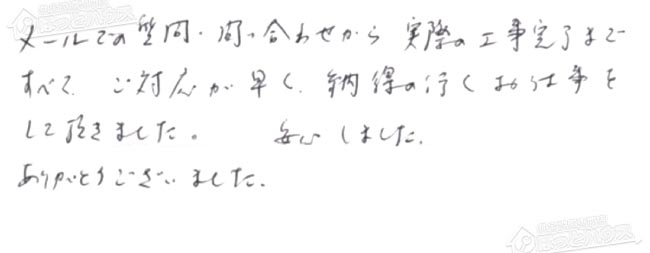 メールでの質問・問い合わせから 実際の工事完了まで
すべて、ご対応が早く、納得の行くお仕事を
して頂きました。 安心しました。
ありがとうございました。